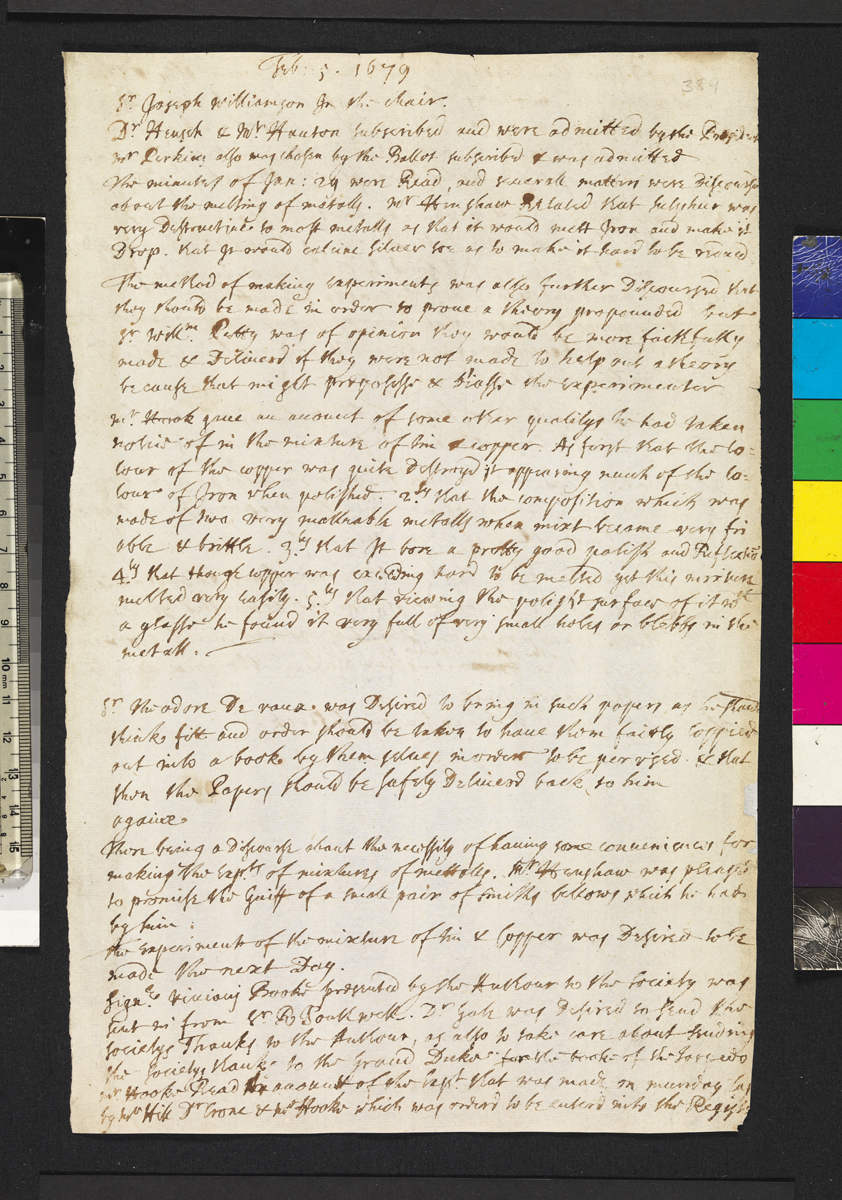 Feb: 5. 1679
389
Sr. Joseph Williamson In the chair.
Dr Heusch & Mr Houton subscribed and were admitted by the President
mr Perkins also was chosen by the Ballot subscribed & was admitted
The minutes of Jan: 29 were Read, and severall matters were Discoursd
about the melting of metalls. mr Henshaw Related that sulphur was
very Destructive to most metalls as that it would melt Iron and make it
Drop. that It would calcine silver soe as to make it hard to be
The method of making experiments was also further Discoursed that
they should be made in order to prove a theory propounded but
Sr Willm. Petty was of opinion they would be more faithfully
made & Deliverd if they were not made to help out a theory
because that might prepossesse & biasse the experimenter
mr Hook gave an account of some other qualitys he had taken
notice of in the mixture of tin & copper. As first that the co=
lour of the copper was quite Destroyd it appearing much of the co=
lour of Iron when polished. 2ly that the composition which was
made of two very malleable metalls when mixt became very fri
able & brittle. 3ly that It bore a pretty good polish and Reflection
4ly that though copper was exceeding hard to be melted yet this mixture
melted very easily. 5ly that viewing the polisht surface of it wth
a glasse he found it very full of very small holes or blebbs in the
metall.
Sr Theodore De vaux was Desired to bring in such papers as he should
think fitt and order should be taken to have them fairly coppied
out into a book by them selves in order to be perused & that
then the Papers should be safely Deliverd back to him
againe.
There being a Discourse about the necessity of having some conveniencies for
making the expts of mixtures of mettalls. Mr Henshaw was pleased
to promise the Guift of a small pair of smiths bellows which he had
by him:
the experiment of the mixture of tin & Copper was Desired to be
made the next Day.
Signr Vivianj Booke presented by the Authour to the Society was
sent in from Sr R Southwell. Dr Gale was Desired to send the
societys Thanks to the Authour, as also to take care about sending
the societys thanks to the Grand Duke for the book of the
mr Hooke Read an account of the expt that was made on munday last
by mr Hill Dr Crone & mr Hooke which was orderd to be enterd into the Register